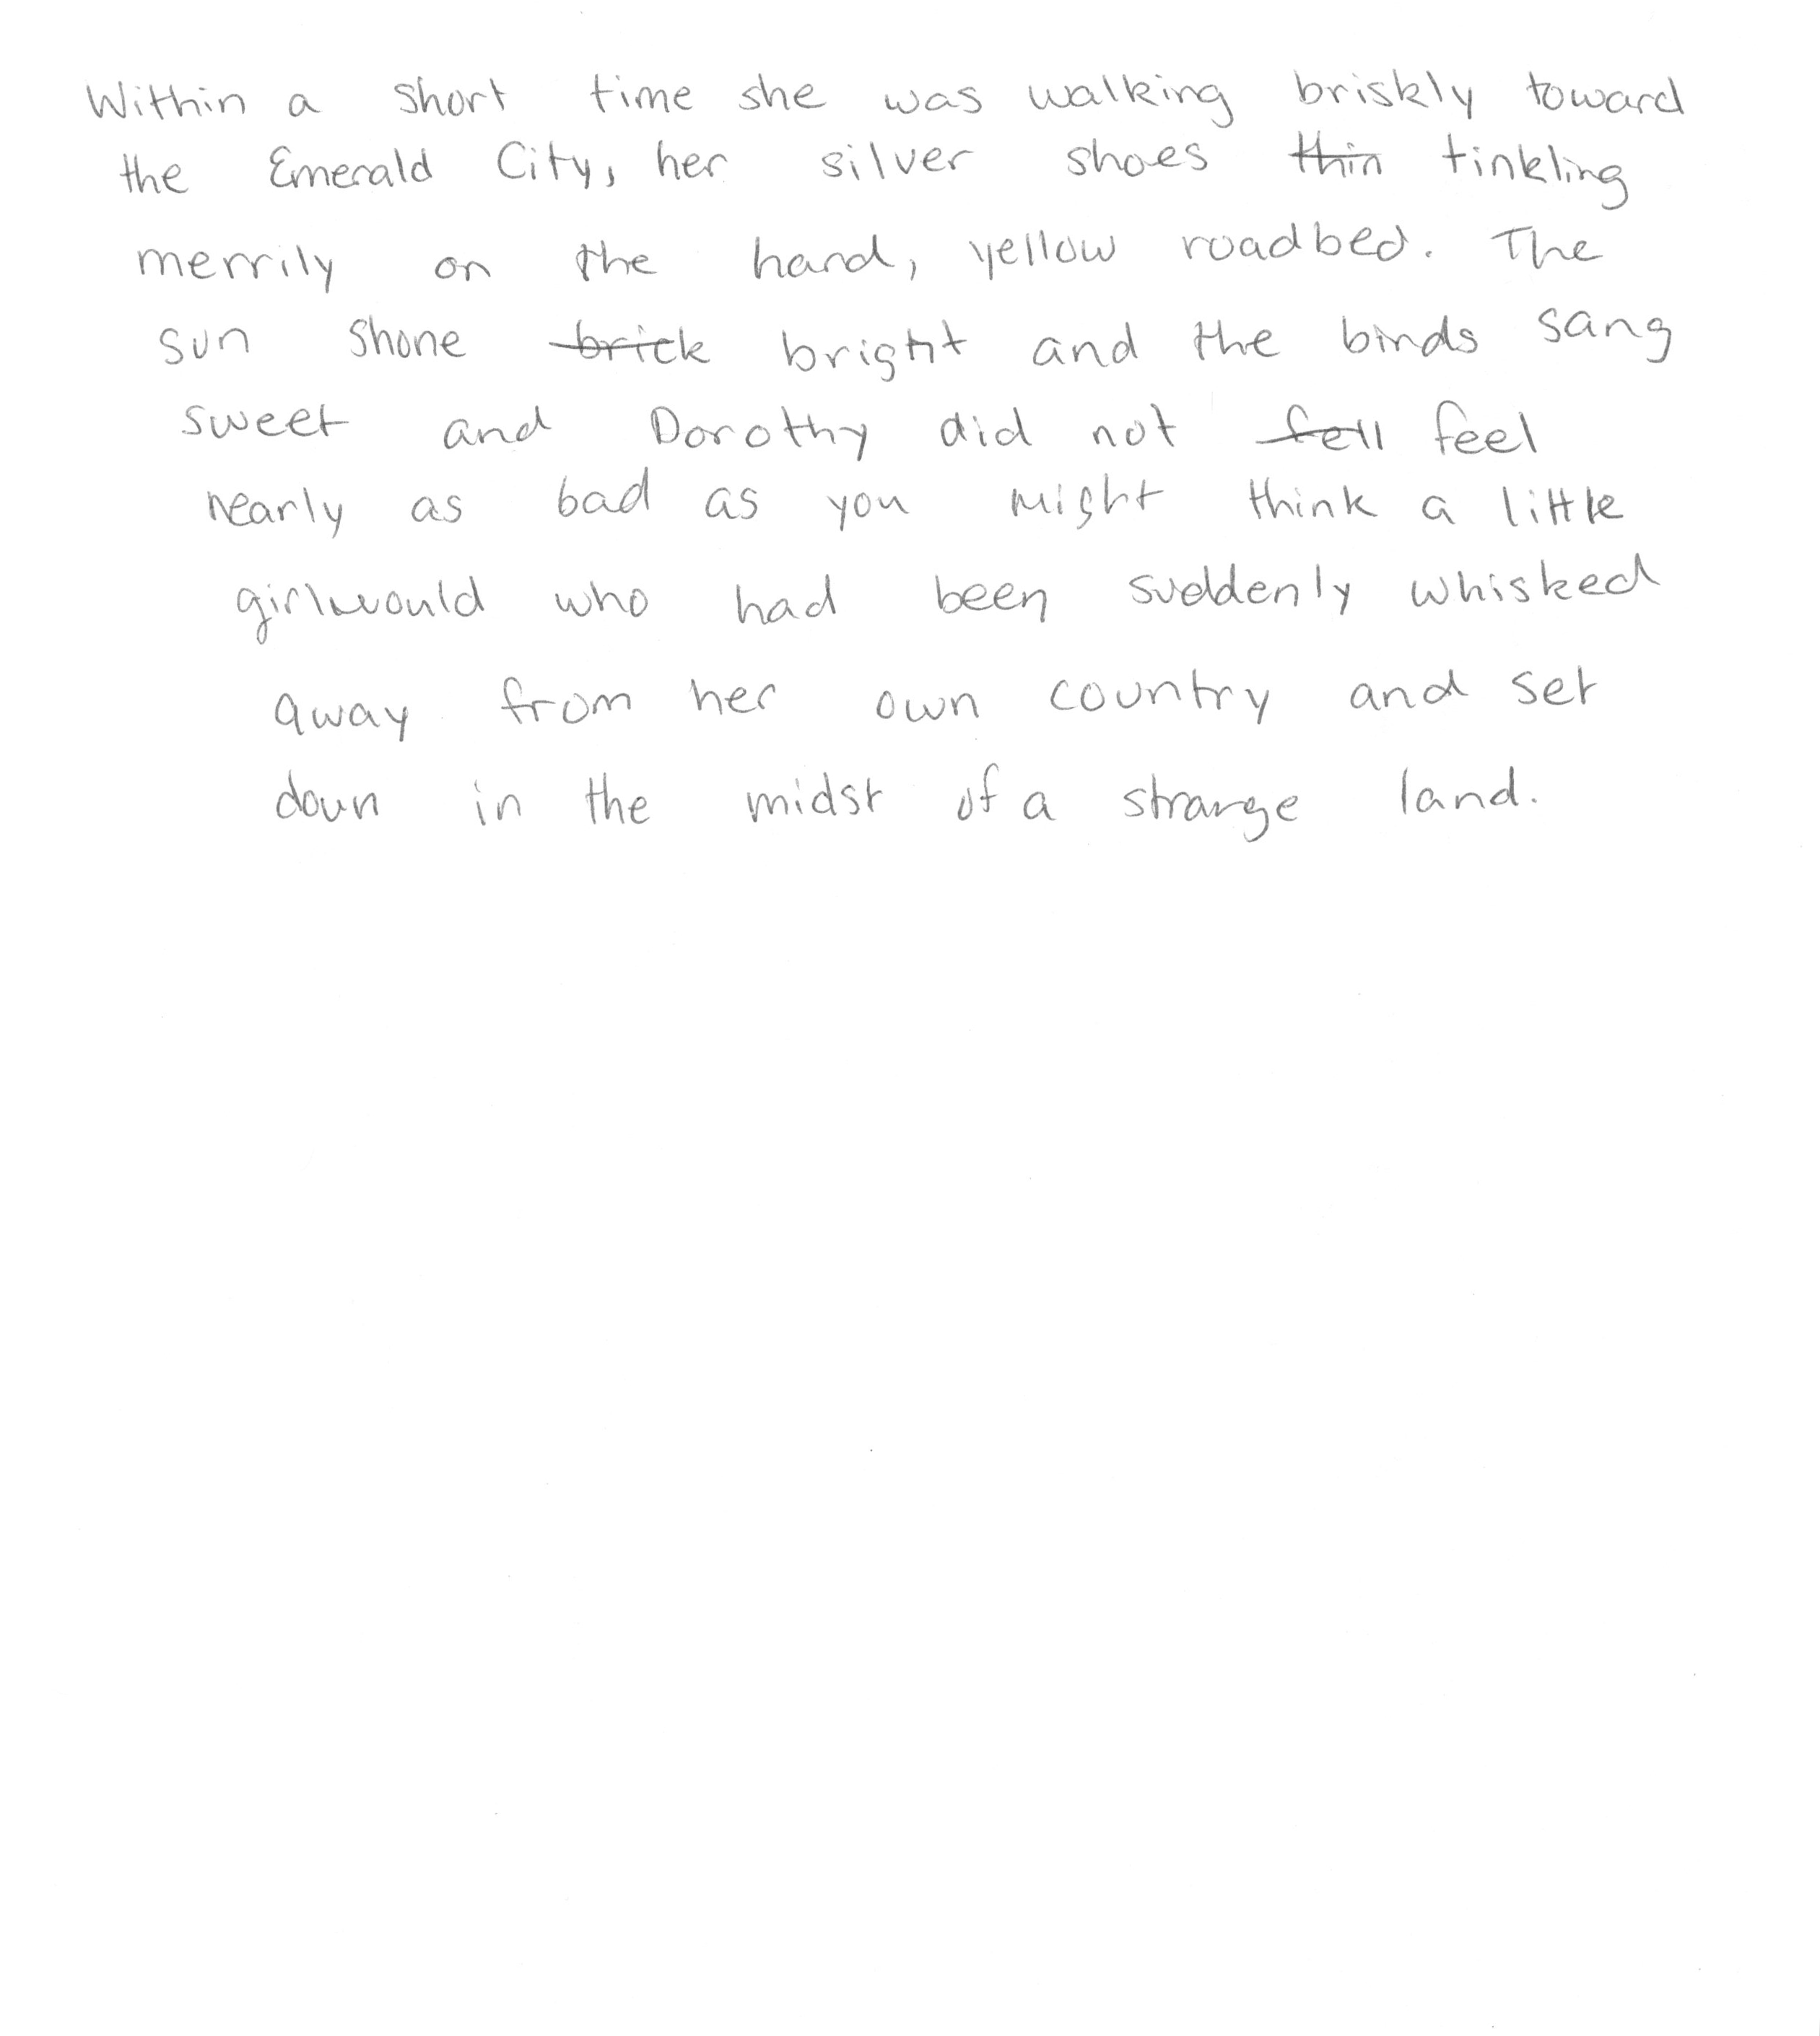 Within a short time she was walking briskly toward
the Emerald City, her silver shoes ~~thin~~ tinkling
merrily on the hard, yellow roadbed. The
sun shone ~~brick~~ bright and the birds sang
sweet and Dorothy did not ~~fell~~ feel
nearly as bad as you might think a little
girl would who had been suddenly whisked
away from her own country and set
down in the midst of a strange land.